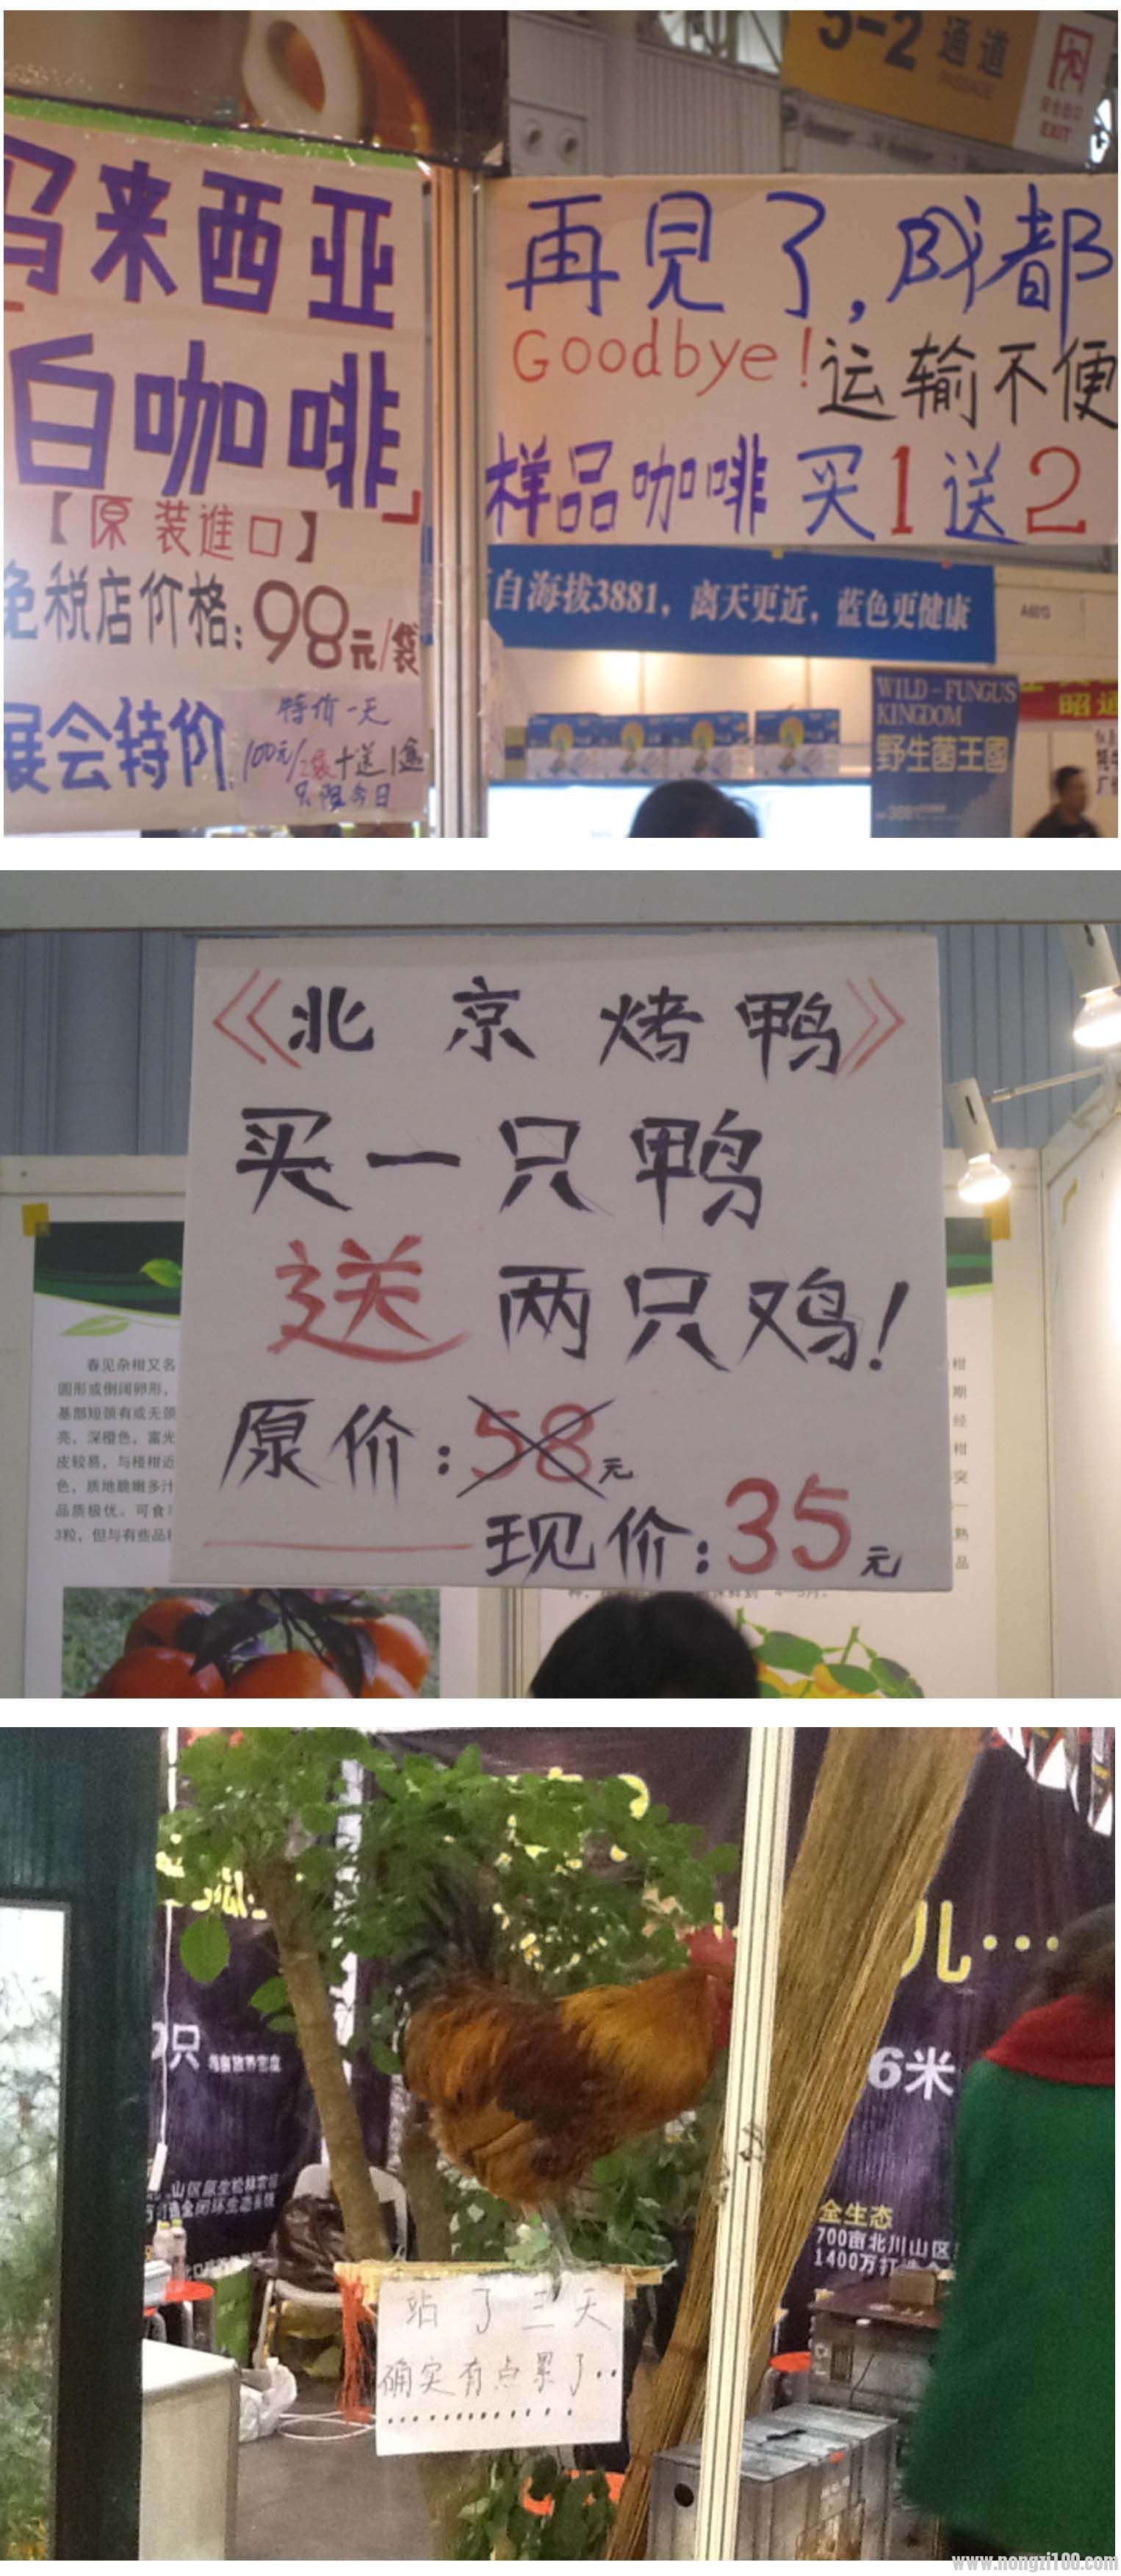 5-2 通道
PASSAGE
安全出口
EXIT
马来西亚
白咖啡」
【原装進口】
免税店价格:98元/袋
展会特价
特价一天
100元/2袋+送1盒
只限今日
再见了,成都
Goodbye!运输不便
样品咖啡 买1送2
自海拔3881，离天更近，蓝色更健康
A6013
WILD-FUNGUS
KINGDOM
野生菌王國
3881
昭通
《北京烤鸭》
买一只鸭
送两只鸡!
原价:58元
现价:35元
春见杂柑又名
圆形或倒阔卵形，
基部短颈有或无颈
亮，深橙色，富光
皮较易，与椪柑近
色，质地脆嫩多汁
品质极优。可食
3粒，但与有些品种
柑
期
经
柑
突
一
熟
品
儿…
0只
6米
山区原生松林
打造全闭环生态
全生态
700亩北川山区
1400万打造
站了三天
确实有点累了..
.............
www.nongzi100.com